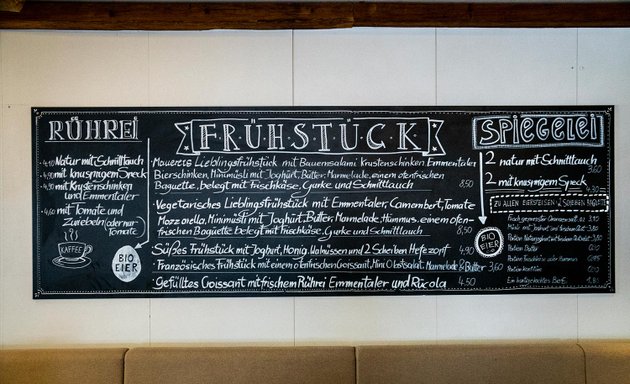 RÜHREI
4,10 Natur mit Schnittlauch
4,90 mit knusprigem Speck
4,90 mit Krustenschinken
und Emmentaler
4,60 mit Tomate und
Zwiebeln (oder nur
Tomate)
KAFFEE
BIO
EIER
FRÜHSTÜCK
Lieblingsfrühstück mit Bauernsalami Krustenschinken, Emmentaler
Bierschinken, Minimüsli mit Joghurt, Butter, Marmelade, einem ofenfrischen
Baguette, belegt mit Frischkäse, Gurke und Schnittlauch 8,50
Vegetarisches Lieblingsfrühstück mit Emmentaler, Camembert, Tomate
Mozzarella, Minimüsli mit Joghurt, Butter, Marmelade, Hummus, einem ofen-
frischen Baguette belegt mit Frischkäse, Gurke und Schnittlauch 8,50
Süßes Frühstück mit Joghurt, Honig, Walnüssen und 2 Scheiben Hefezopf 4,90
Französisches Frühstück mit einem ofenfrischen Croissant, Mini Obstsalat, Marmelade & Butter 3,60
Gefülltes Croissant mit frischem Rührei Emmentaler und Rucola 4,50
SPIEGELEI
2 natur mit Schnittlauch
3,60
2 mit knusprigem Speck
4,30
ZU ALLEN EIERSPEISEN 2 SCHEIBEN BAGUETTE
BIO
EIER
Portion Butter
Portion Frischkäse oder Hummus
Portion Konfitüre
Ein hartgekochtes Bioei